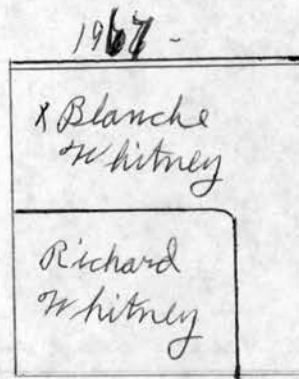 1967 -
x Blanche
Whitney
Richard
Whitney